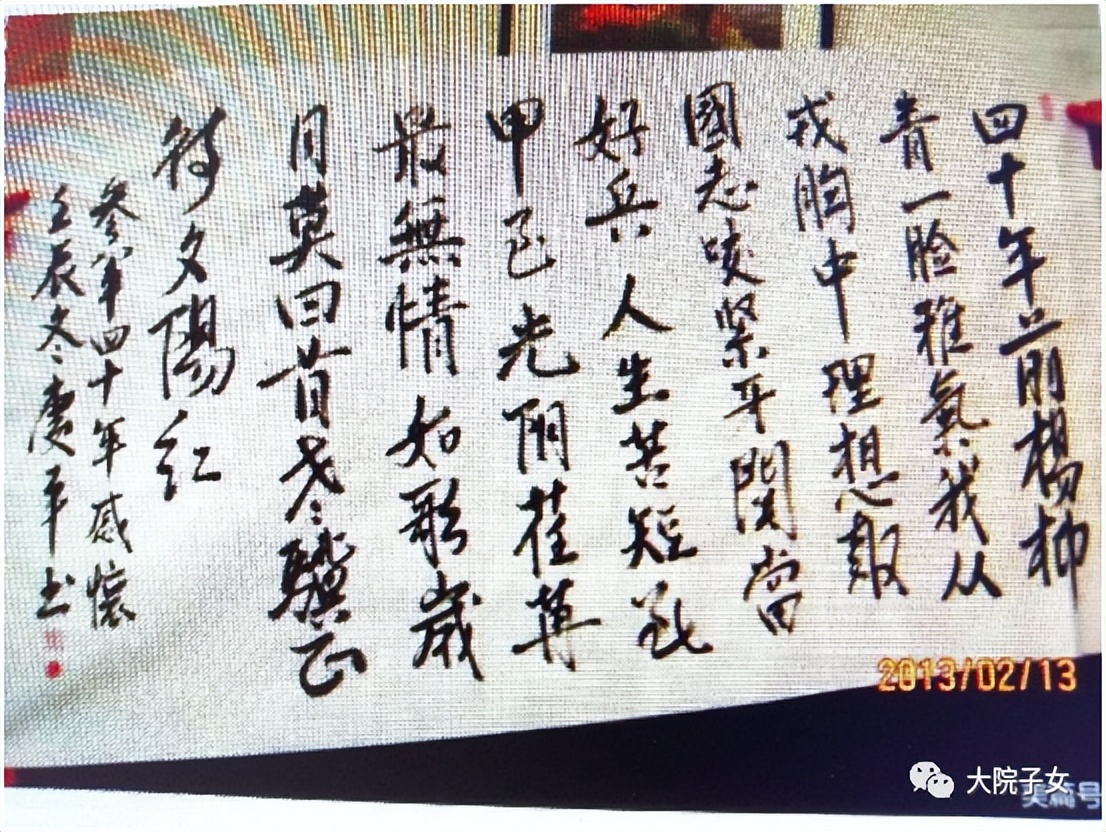 四十年前楊柳
青一脸稚氣我从
戎胸中理想報
國志咬緊牙関當
好兵人生苦短花
甲已光阴荏苒
最無情如歌歲
月莫回首老驥正
待夕陽红
参军四十年感懷
壬辰冬慶平书
2013/02/13
大院子女
美篇号